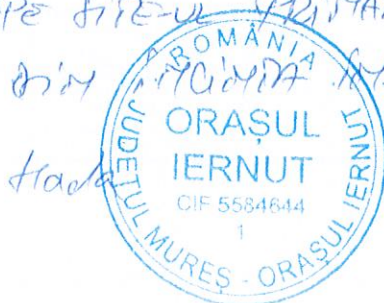 PE SITE-UL
DIN INCINTA
ROMÂNIA
JUDEȚUL MUREȘ - ORAȘUL IERNUT
ORAȘUL
IERNUT
CIF 5584644
1